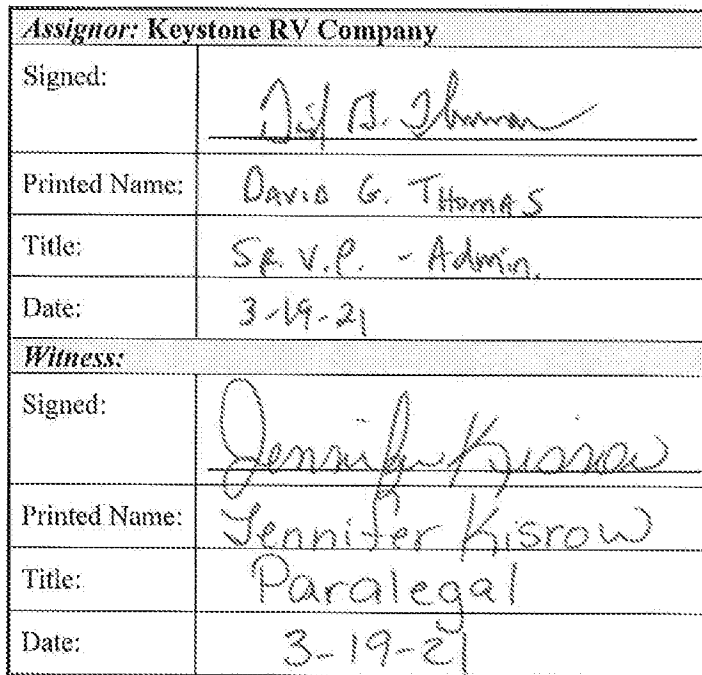 Assignor: Keystone RV Company
Signed:
Printed Name: DAVID G. THOMAS
Title: SR. V.P. - Admin.
Date: 3-19-21
Witness:
Signed: Jennifer Kisrow
Printed Name: Jennifer Kisrow
Title: Paralegal
Date: 3-19-21